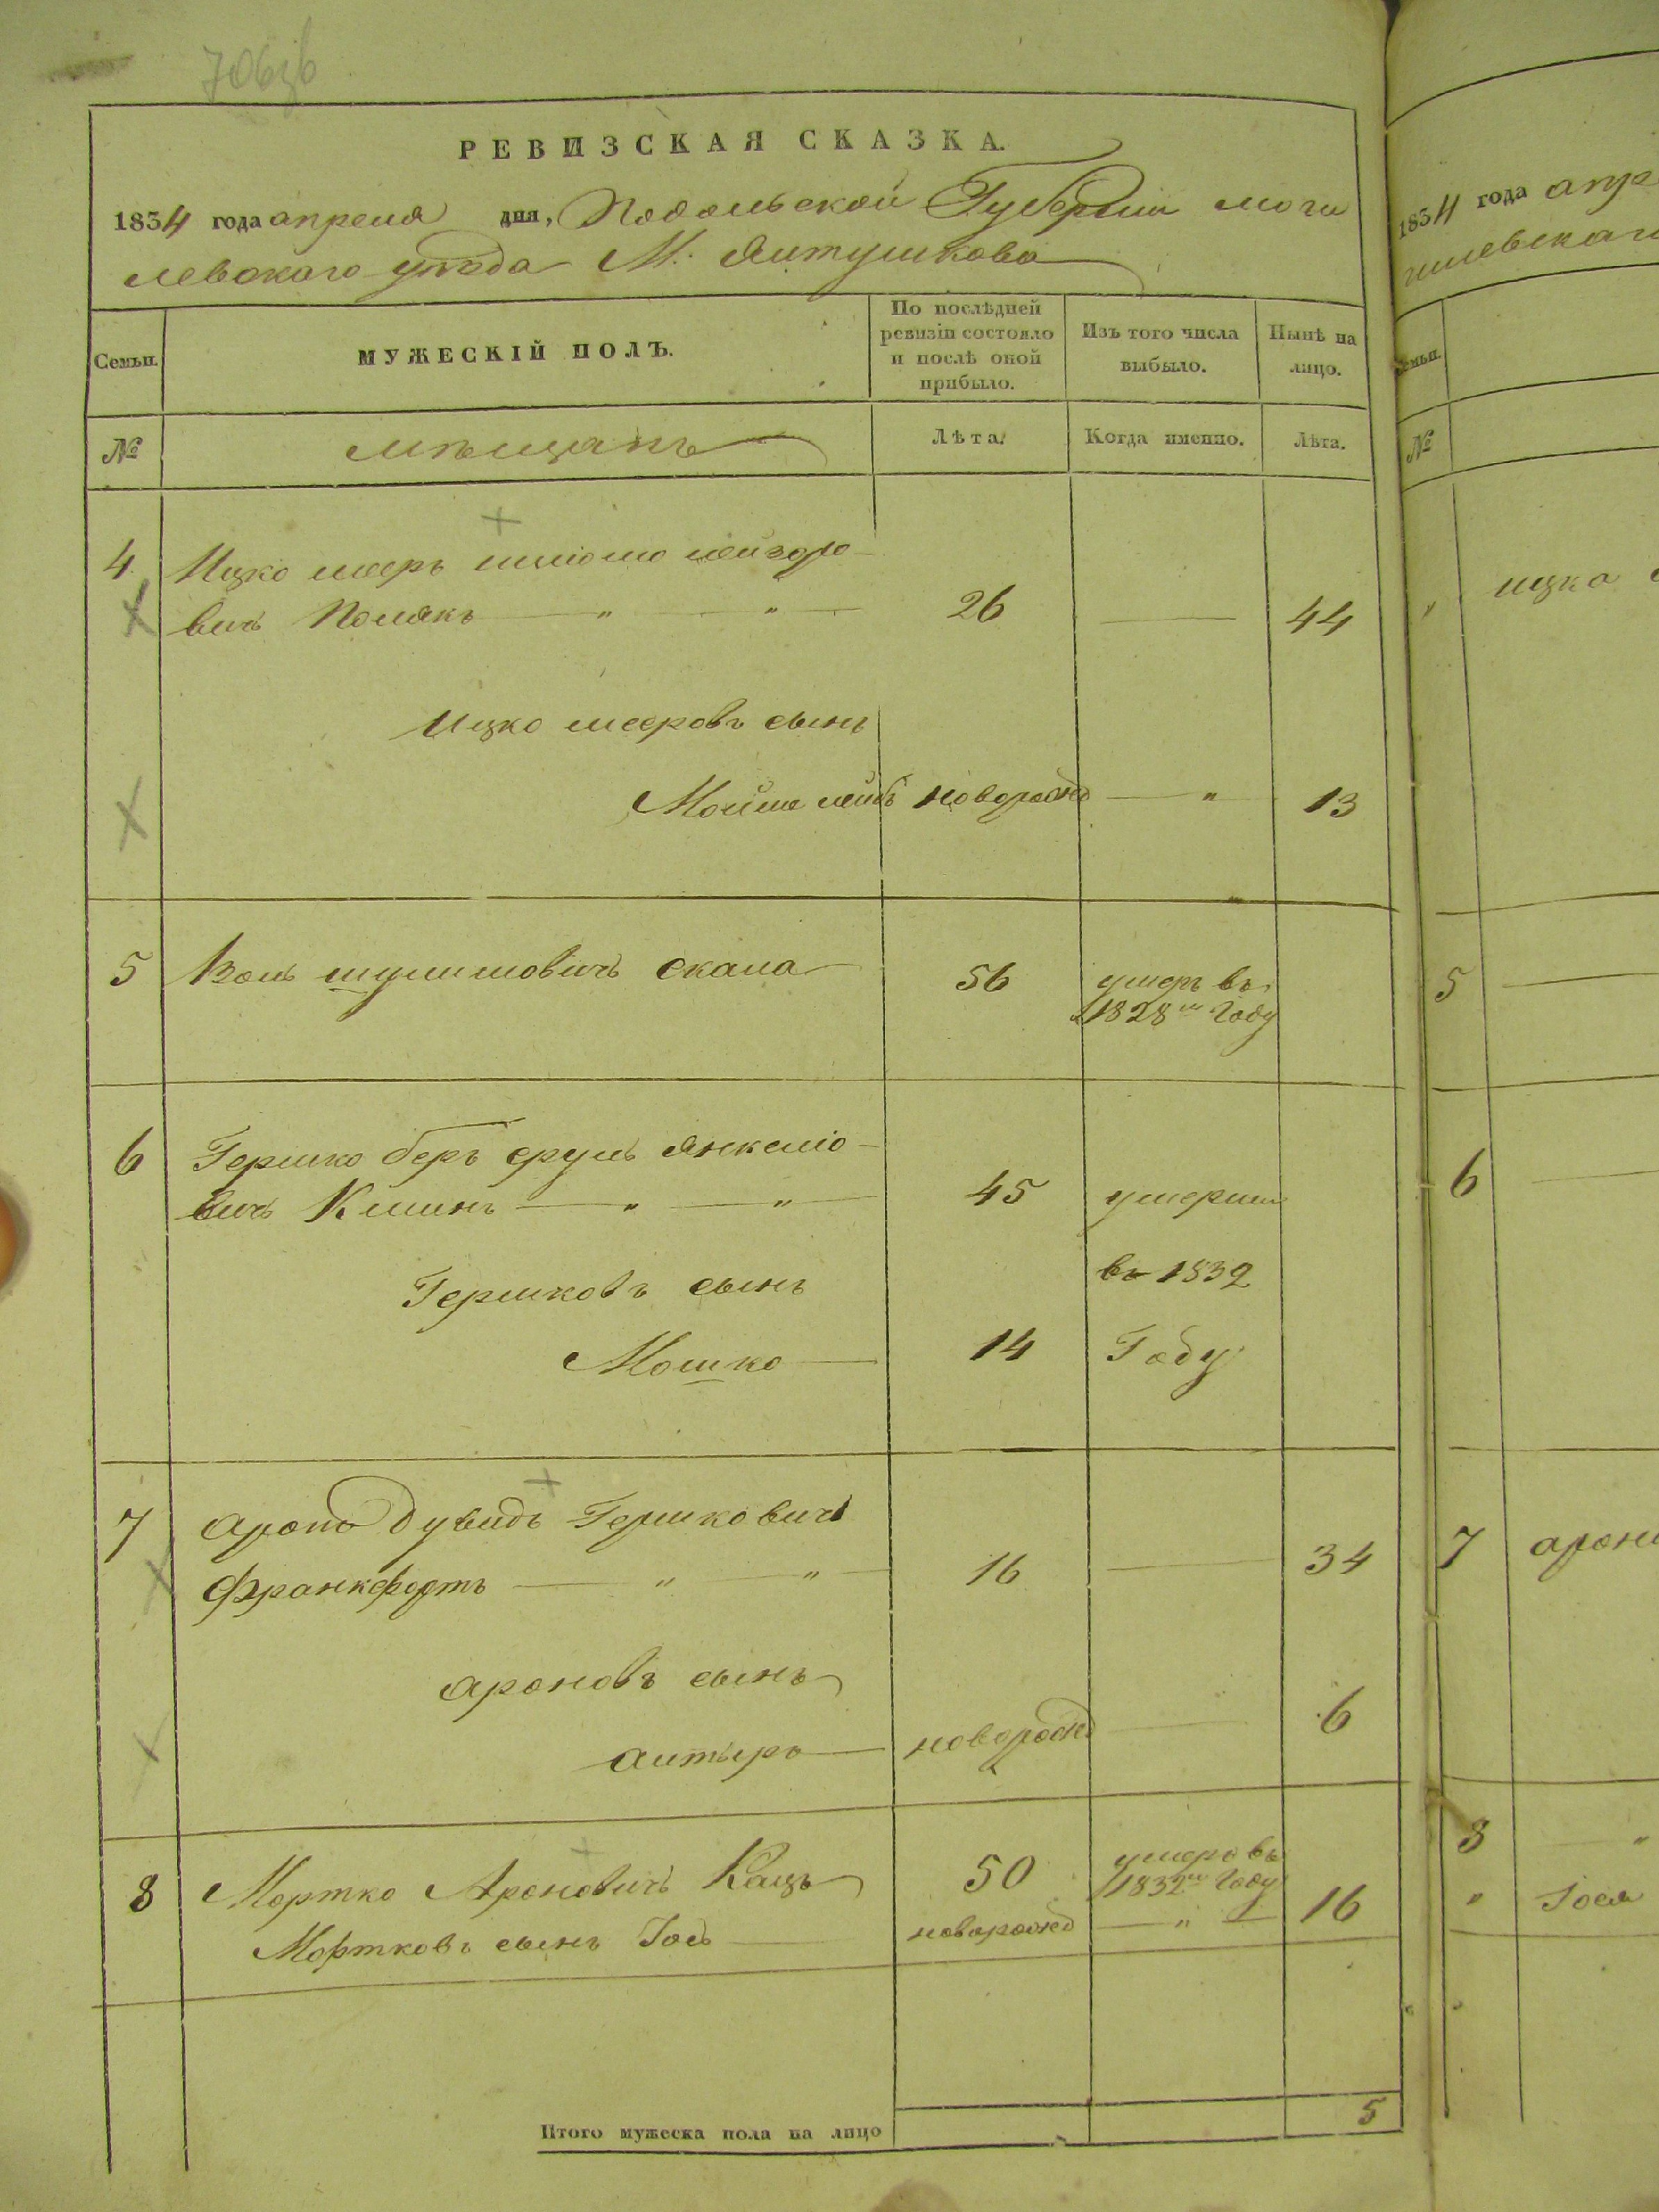 РЕВИЗСКАЯ СКАЗКА.
1834 года апреля дня, Подольской Губернии моги
левского уѣзда М. Ялтушкова
Семьи.
МУЖЕСКІЙ ПОЛЪ.
По послѣдней ревизіи состояло и послѣ оной прибыло.
Изъ того числа выбыло.
Нынѣ на лицо.
№
мѣщанъ
Лѣта.
Когда именно.
Лѣта.
4 Ицко меер шлiомо лейзоро
вичъ Полякъ — " — " — 26 — 44
Ицко мееровъ сынъ
Мойше лейб новорожд — " 13
5 Волъ шулимовичъ скала 56 умеръ въ
1828м Году
6 Гершко беръ сруль Янкелiо
вичъ Клинъ — " — " — 45 умерши
въ 1832
Гершковъ сынъ
Мошко — 14 Году
7 Аронъ дувидъ Гершковичъ
Франкфортъ — " — " — 16 — 34
Ароновъ сынъ
Алтыръ — новорожд — 6
8 Мортко Ароновичъ Кацъ 50 умеръ въ
1832м Году
Мортковъ сынъ Iось — новорожд — " — 16
Итого мужеска пола на лицо 5
1834 года апре
гилевскаго
№
ицка
5 —
6 —
7 арон
8 — "
" Iося